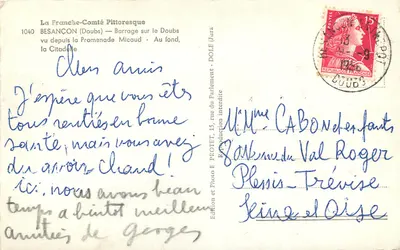 La Franche-Comté Pittoresque
1040 BESANÇON (Doubs) - Barrage sur le Doubs
vu depuis la Promenade Micaud - Au fond,
la Citadelle
Chers amis
J'espère que vous êtes
tous rentrés en bonne
santé, mais vous avez
du avoir chaud!
Ici, nous avons beau
temps a bientôt meilleures
amitiés de georges
15, rue du Parlement - DOLE (Jura)
Reproduction interdite
15F
1956
DOUBS
M. Mme CABON et enfants
8 avenue du Val Roger
Plessis-Trévise
Seine et Oise